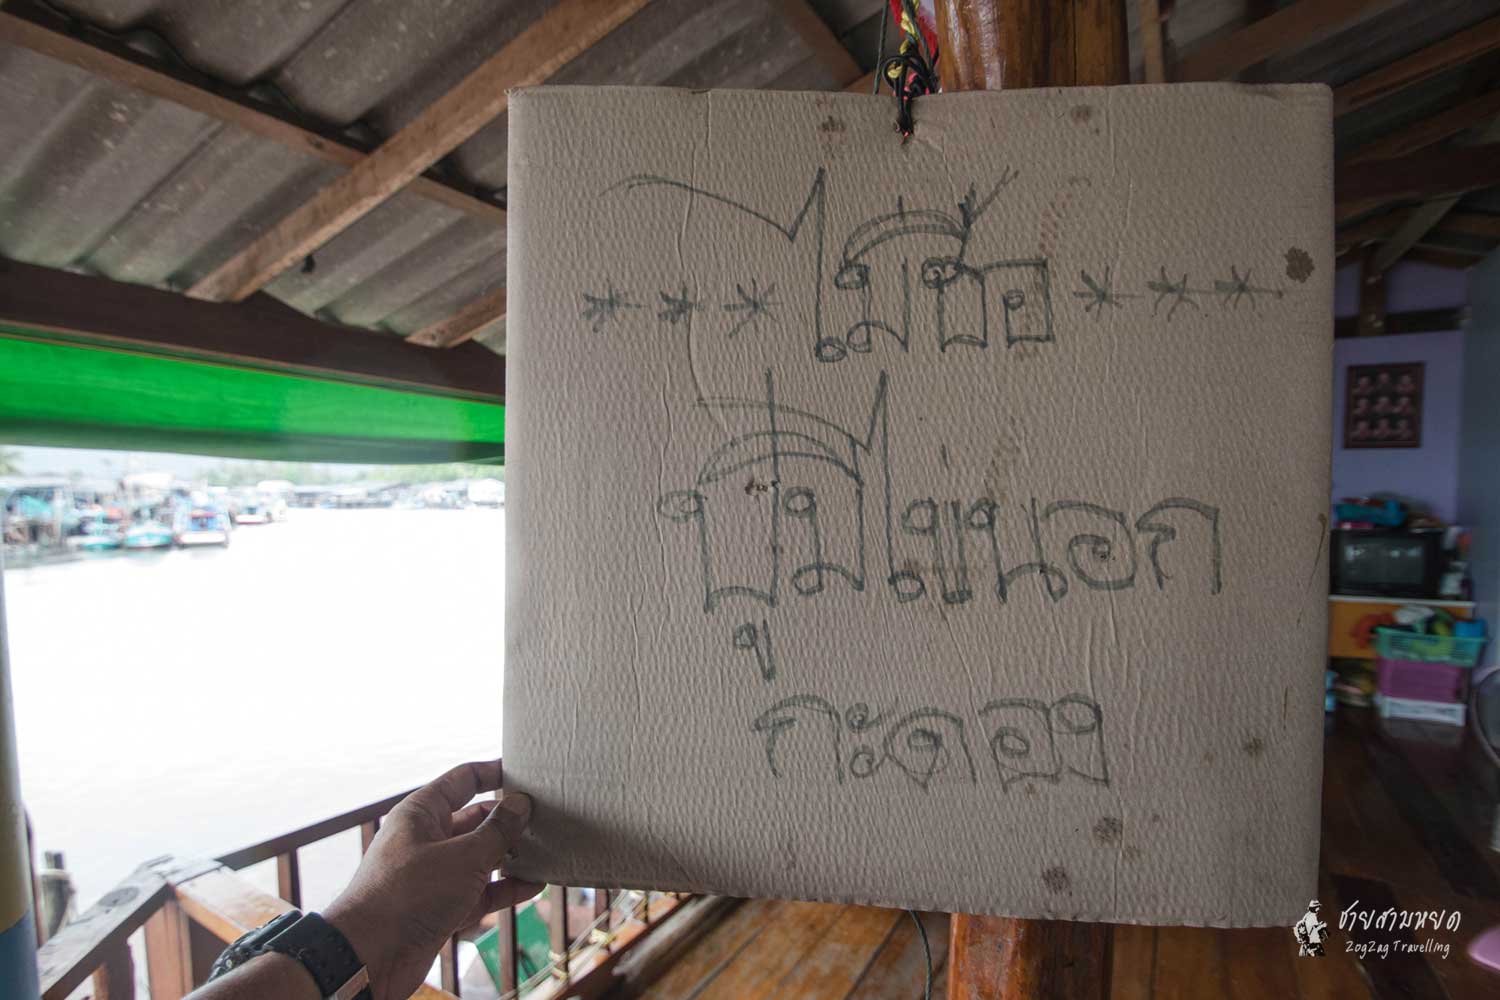 *** ไม่ซื้อ ***
ปูมีไข่นอก
กะดอง
ชายสามหยด
ZogZag Travelling